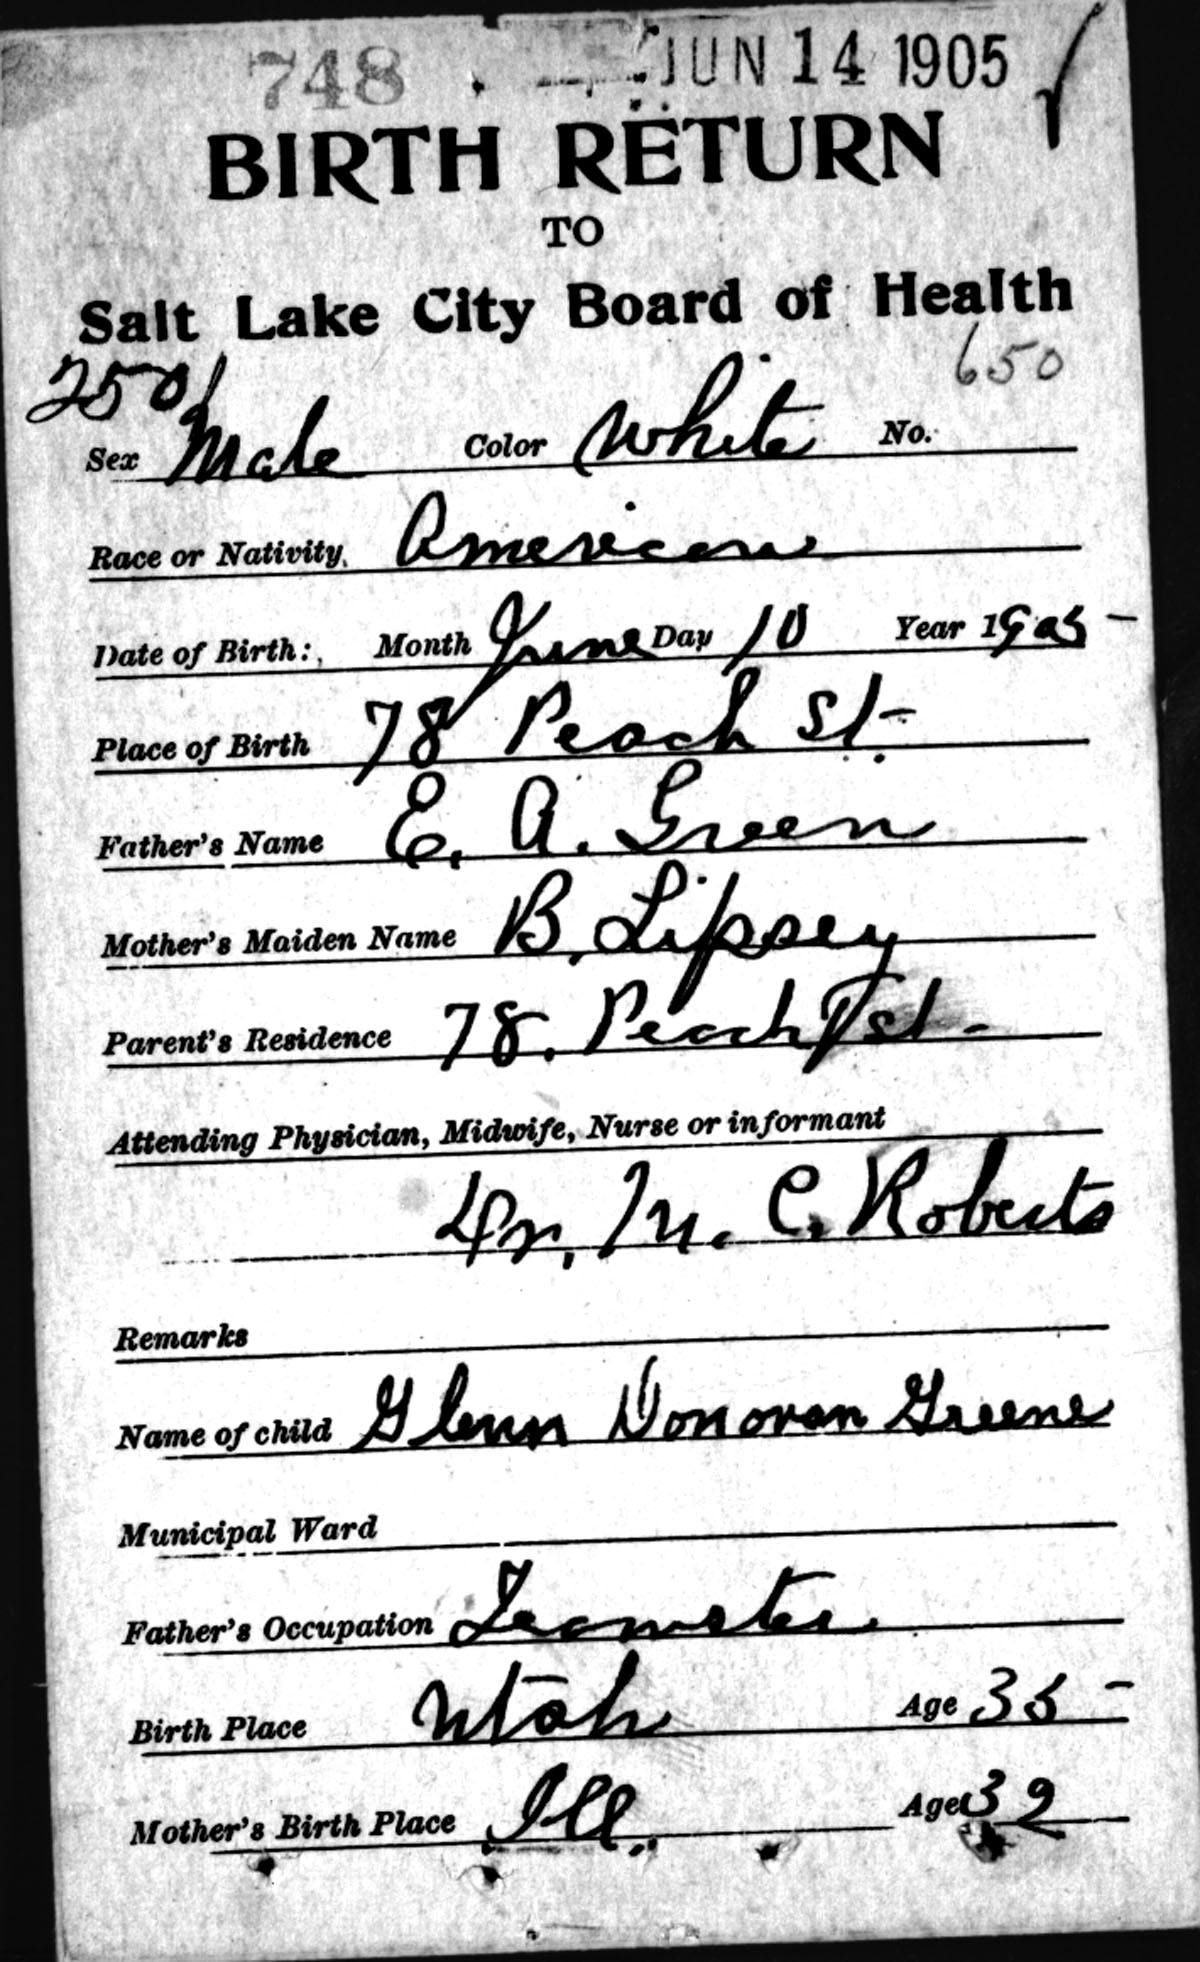 748 JUN 14 1905
BIRTH RETURN
TO
Salt Lake City Board of Health
650
2501
Sex Male Color White No.
Race or Nativity. American
Date of Birth: Month June Day 10 Year 1905 -
Place of Birth 78 Peach St.
Father's Name E. A. Green
Mother's Maiden Name B. Lipsey
Parent's Residence 78. Peach St -
Attending Physician, Midwife, Nurse or informant
Dr. M. C. Roberts
Remarks
Name of child Glenn Donovan Greene
Municipal Ward
Father's Occupation Teamster
Birth Place Utah Age 35 -
Mother's Birth Place Ill. Age 32